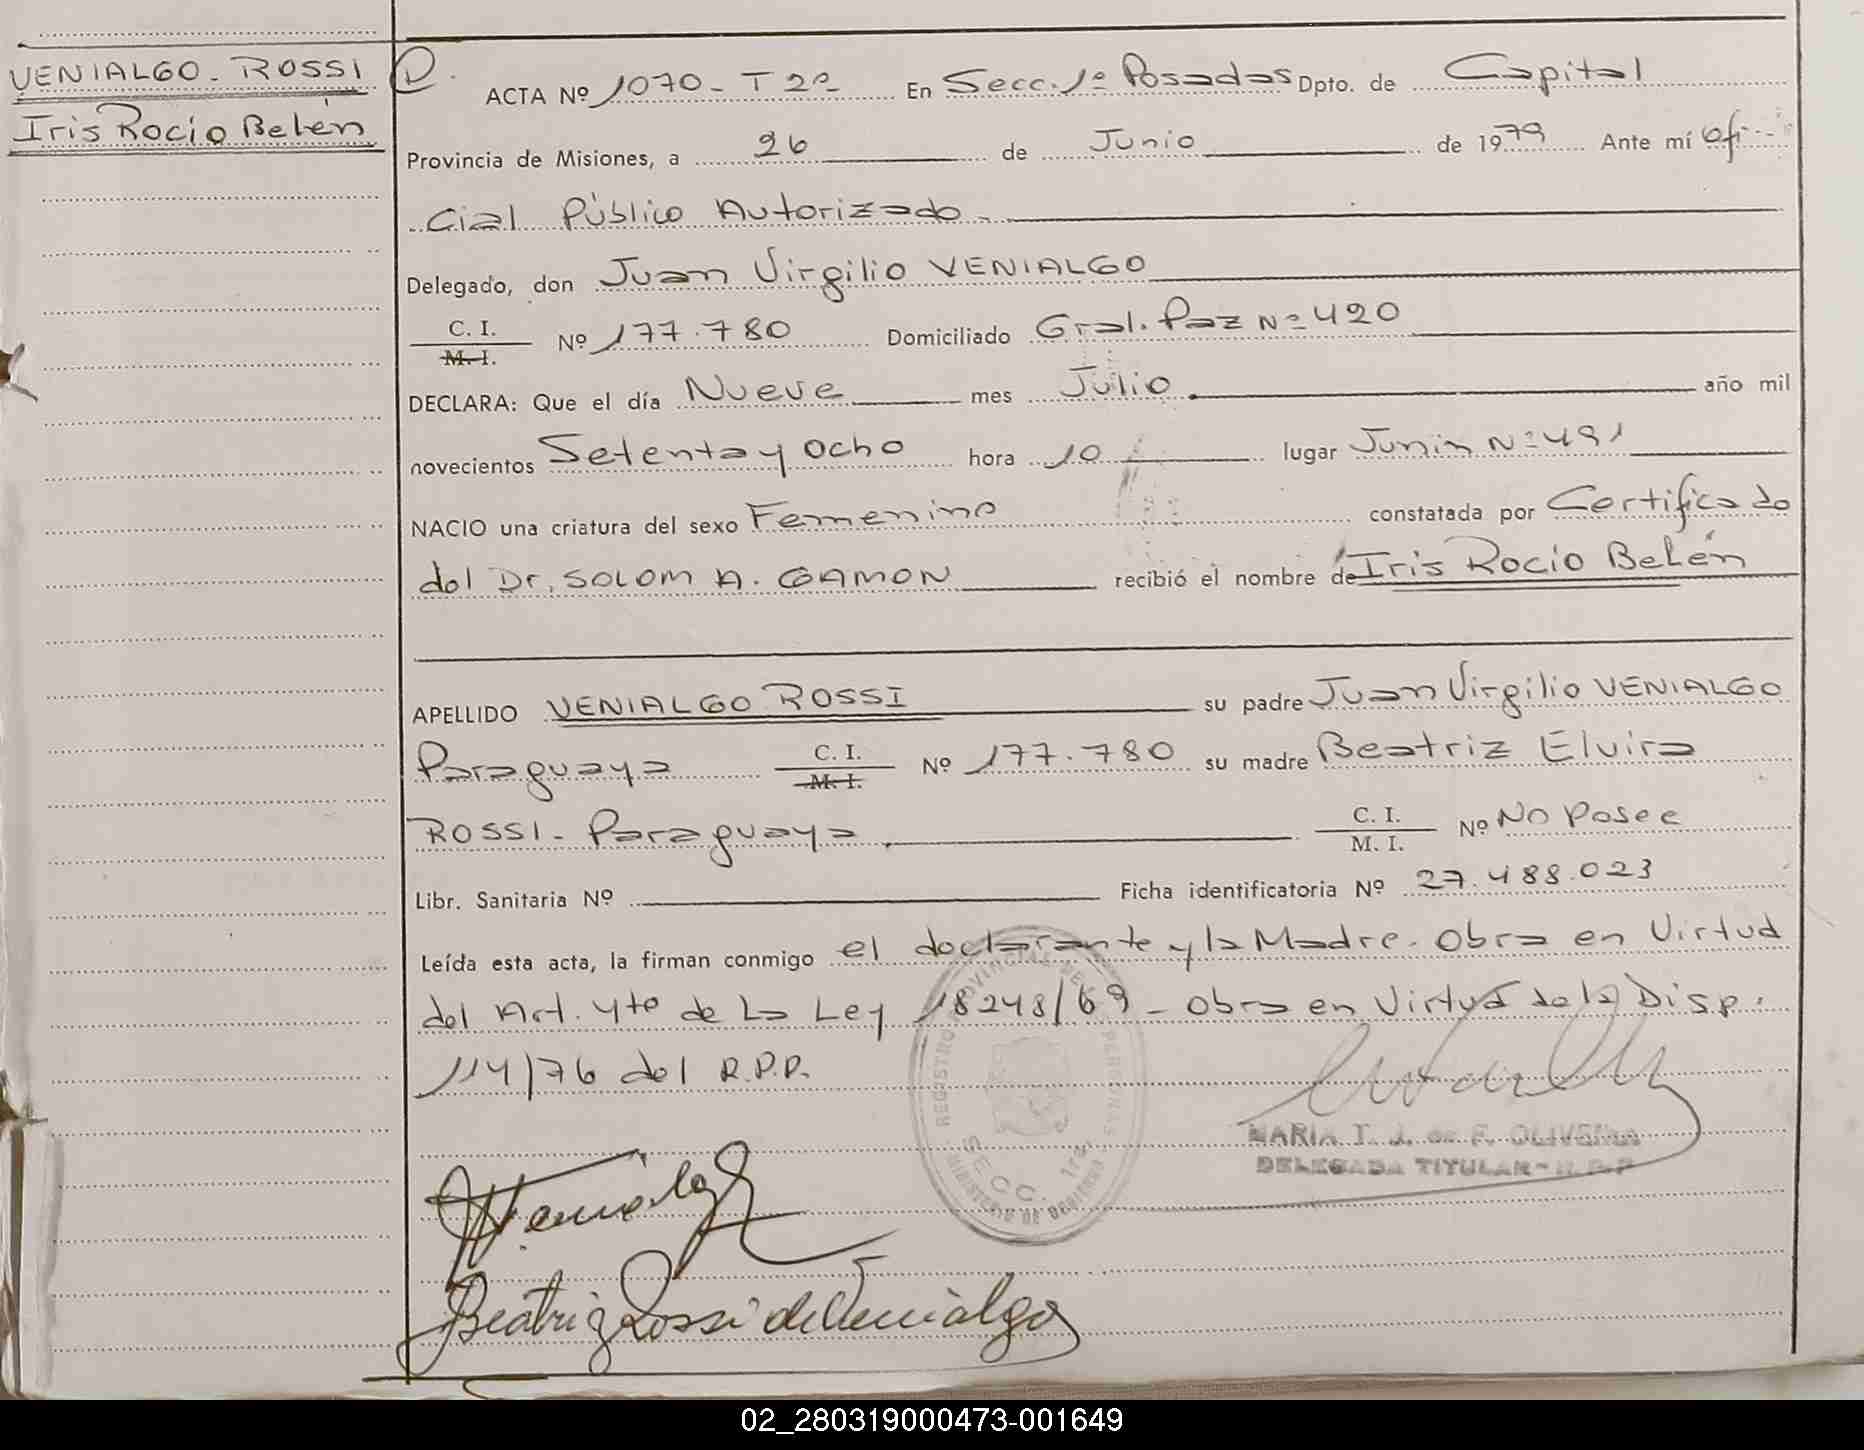 VENIALGO - ROSSI
Iris Rocío Belén
D.
ACTA Nº 1070 - T 2º En Secc. 1º Posadas Dpto. de Capital
Provincia de Misiones, a 26 de Junio de 1979 Ante mí ofi-
cial Público Autorizado.
Delegado, don Juan Virgilio VENIALGO
C. I.
M. I. Nº 177.780 Domiciliado Gral. Paz Nº 420
DECLARA: Que el día Nueve mes Julio año mil
novecientos Setenta y ocho hora 10 lugar Junín Nº 491
NACIO una criatura del sexo Femenino constatada por Certificado
del Dr. SOLOM A. GAMON recibió el nombre de Iris Rocío Belén
APELLIDO VENIALGO ROSSI su padre Juan Virgilio VENIALGO
Paraguaya C. I.
M. I. Nº 177.780 su madre Beatriz Elvira
ROSSI - Paraguaya C. I.
M. I. Nº No Posee
Libr. Sanitaria Nº Ficha identificatoria Nº 27.488.023
Leída esta acta, la firman conmigo el declarante y la Madre. Obra en Virtud
del Art. 4to de La Ley 18248/69 - Obra en Virtud de la Disp.
114/76 del R.P.P.
REGISTRO PROVINCIAL DE PERSONAS
SECC. 1ra.
MINISTERIO DE GOBIERNO
MARIA T. J. de F. OLIVEIRA
DELEGADA TITULAR - R.P.P
Venialgo
Beatriz Rossi de Venialgo
02_280319000473-001649